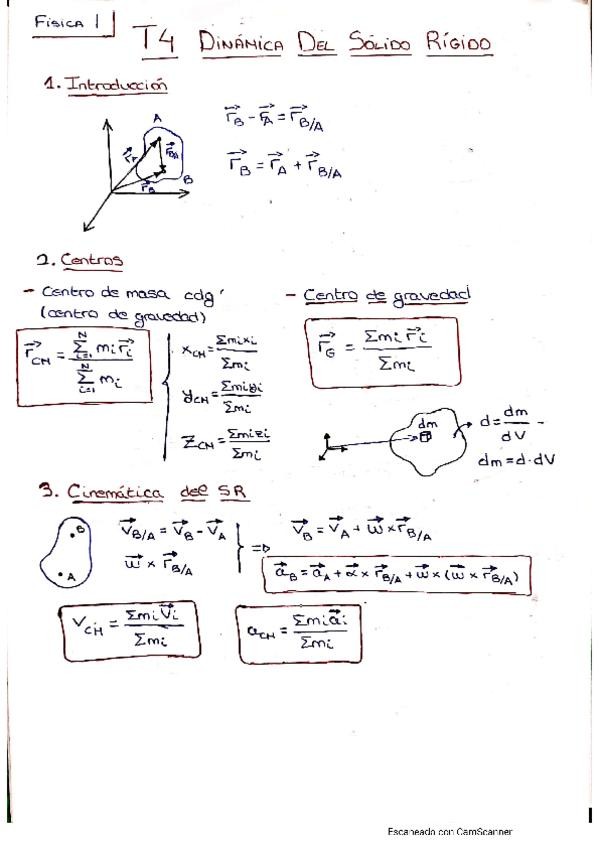 FÍSICA 1
T4 DINÁMICA DEL SÓLIDO RÍGIDO
1. Introducción
A
r⃗A
r⃗BA
r⃗B
B
r⃗B - r⃗A = r⃗B/A
r⃗B = r⃗A + r⃗B/A
2. Centros
- Centro de masa cdg'
(centro de gravedad)
r⃗CM = Σ(i=1, N) mi r⃗i / Σ(i=1, N) mi
xCM = Σmixi / Σmi
yCM = Σmiyi / Σmi
zCM = Σmizi / Σmi
- Centro de gravedad
r⃗G = Σmi r⃗i / Σmi
dm
d = dm / dV -
dm = d·dV
3. Cinemática del SR
B
A
v⃗B/A = v⃗B - v⃗A
w⃗ x r⃗B/A
=> v⃗B = v⃗A + w⃗ x r⃗B/A
a⃗B = a⃗A + α⃗ x r⃗B/A + w⃗ x (w⃗ x r⃗B/A)
v⃗CM = Σmi v⃗i / Σmi
a⃗CM = Σmi a⃗i / Σmi
Escaneado con CamScanner